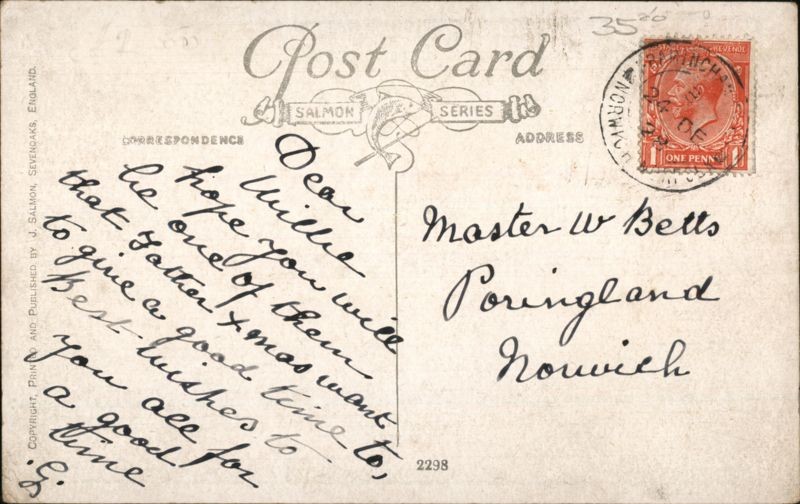 35 20
Post Card
SALMON SERIES
CORRESPONDENCE
ADDRESS
REVENUE
ONE PENNY
FRAMINGHAM
NORWICH
24 DE
Dear
Willie
hope you will
be one of them
that Father Xmas want
to give a good time to,
Best wishes to
you all for
a good
time
G.
Master W Betts
Poringland
Norwich
2298
COPYRIGHT, PRINTED AND PUBLISHED BY J. SALMON, SEVENOAKS, ENGLAND.